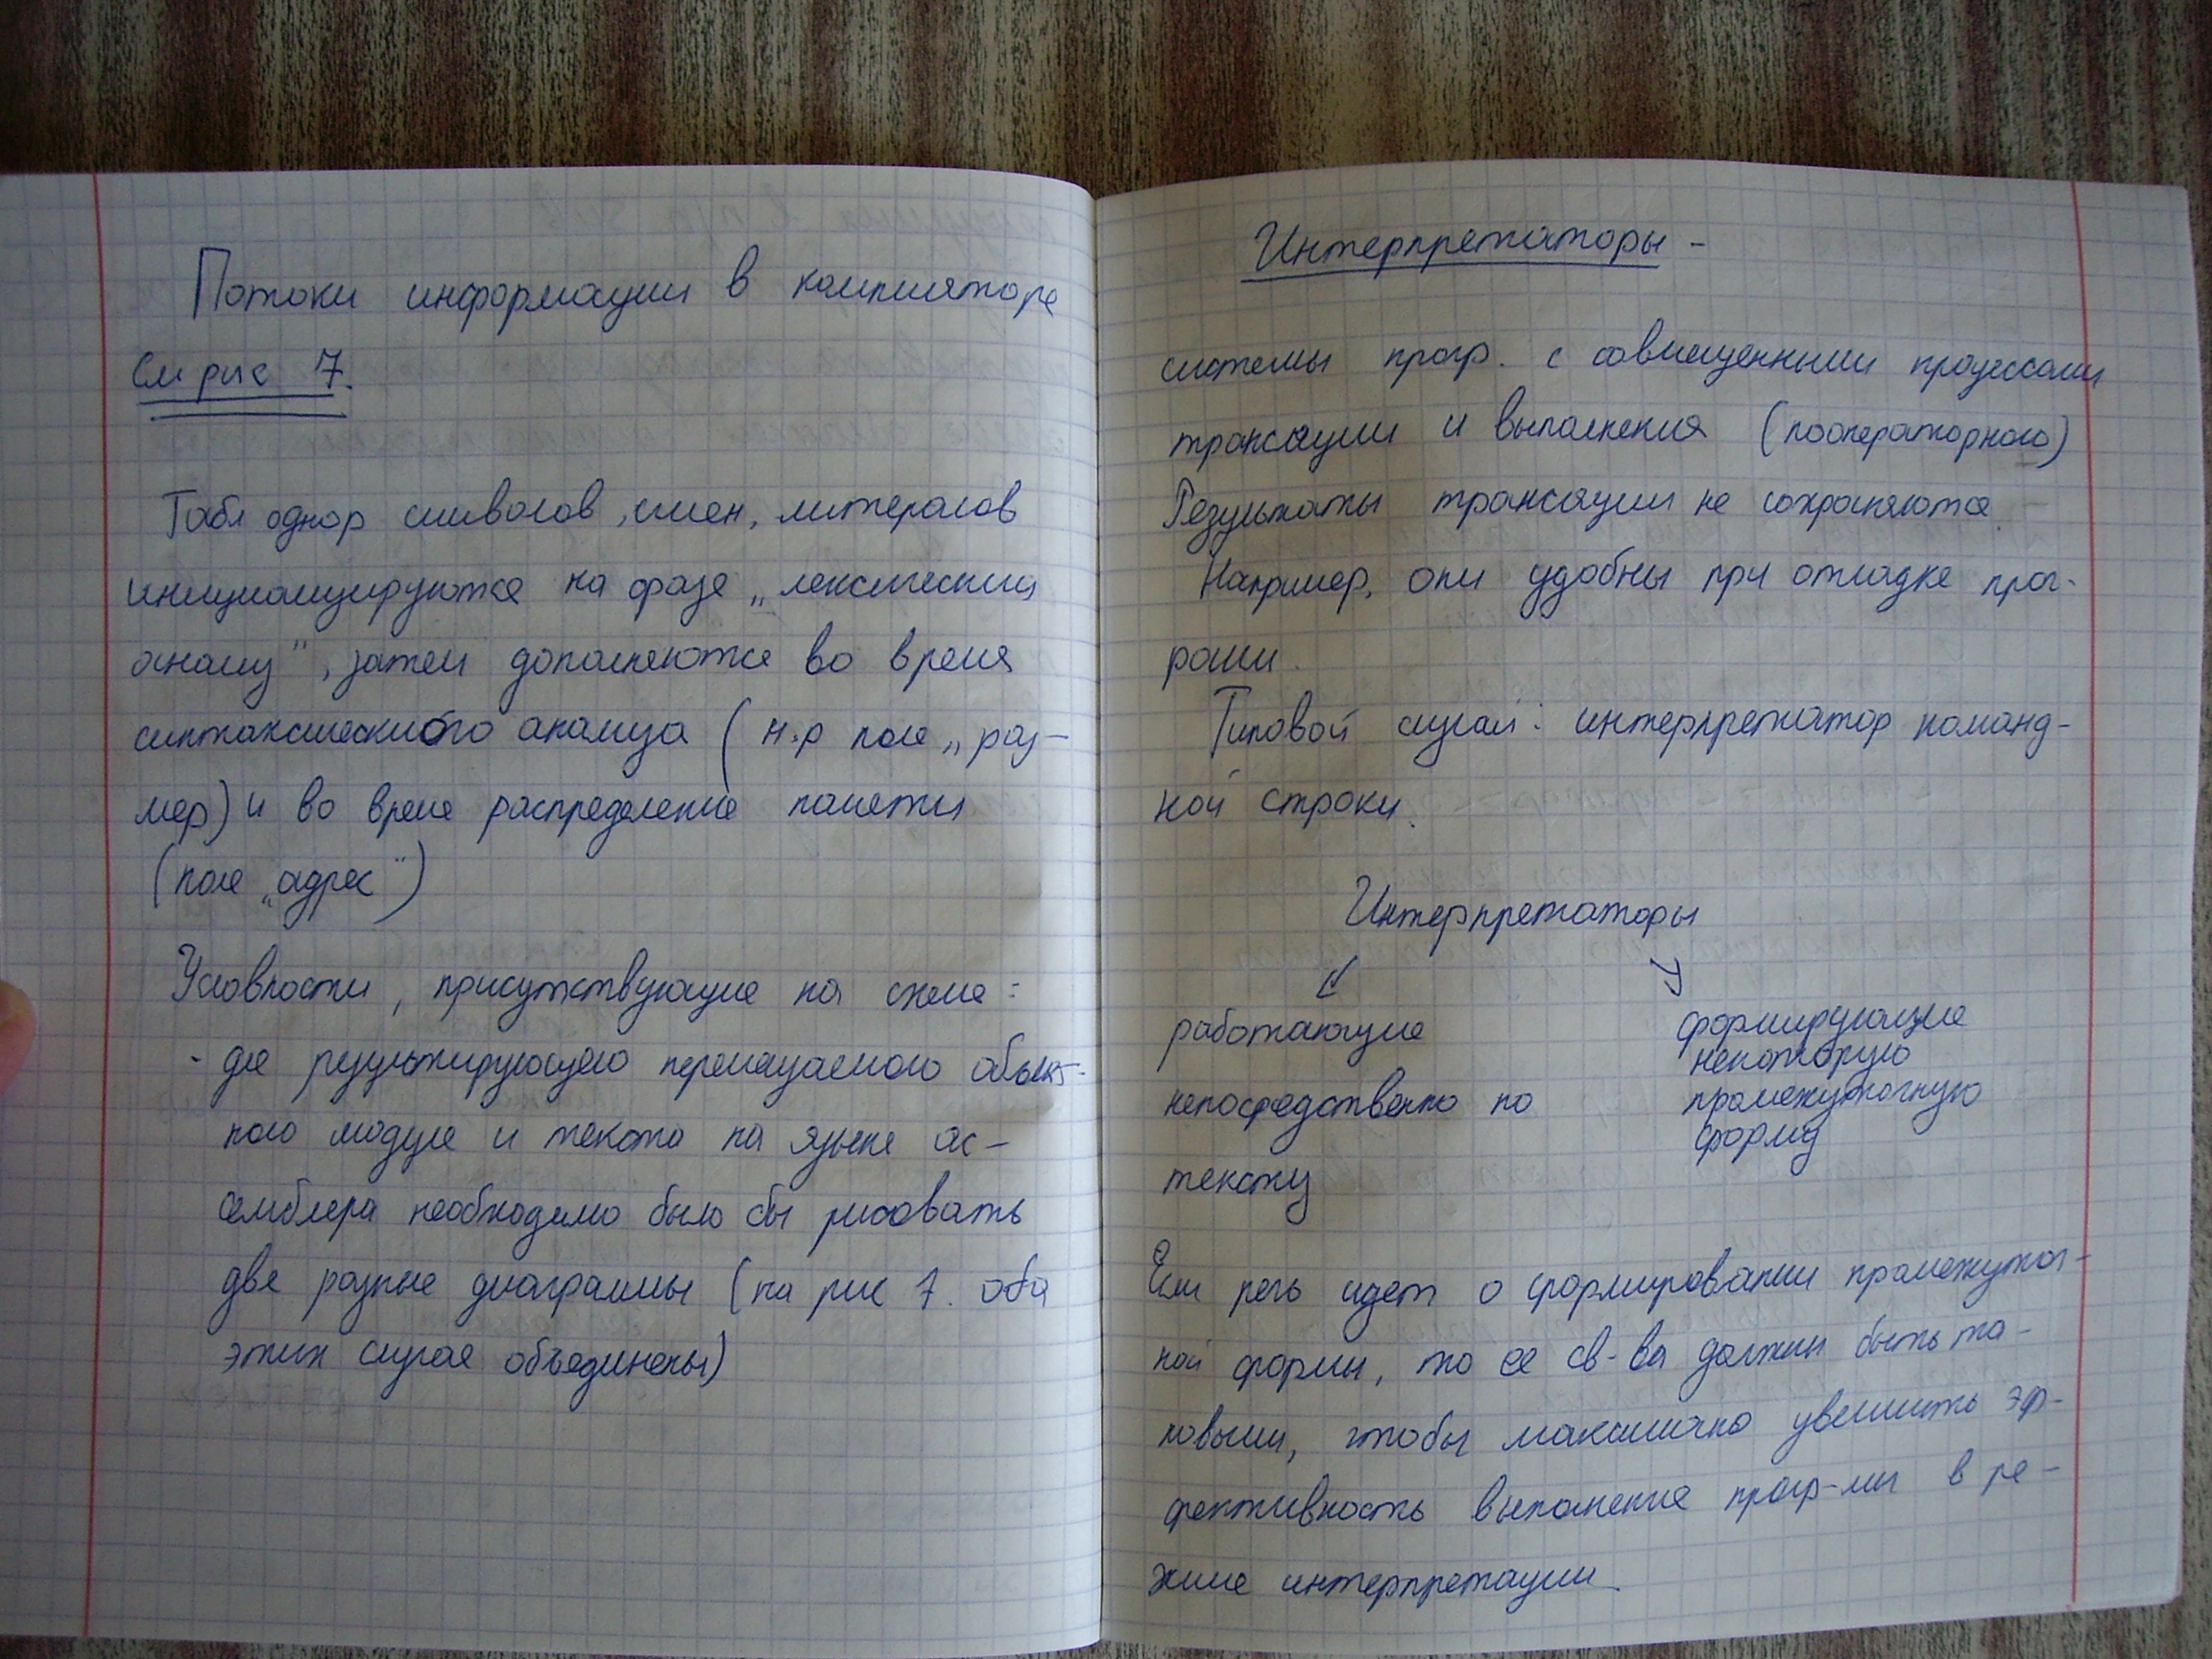 Потоки информации в компиляторе
См рис 7.
Табл однор символов, имен, литералов
инициализируются на фазе „лексический
анализ", затем дополняются во время
синтаксического анализа (н-р поле „раз-
мер) и во время распределение памяти
(поле „адрес")
Условности, присутствующие на схеме:
- для результирующего перемещаемого объект-
ного модуля и текста на языке ас-
семблера необходимо было бы рисовать
две разные диаграммы (на рис 7. оба
этих случая объединены)
Интерпретаторы -
системы прогр. с совмещенными процессами
трансляции и выполнения (пооператорного)
Результаты трансляции не сохраняются.
Например, они удобны при отладке прог-
рамм.
Типовой случай: интерпретатор команд-
ной строки.
Интерпретаторы
работающие
непосредственно по
тексту
формирующие
некоторую
промежуточную
форму
Если речь идет о формировании промежуточ-
ной формы, то ее св-ва должны быть та-
ковыми, чтобы максимально увеличить эф-
фективность выполнения прогр-мы в ре-
жиме интерпретации.